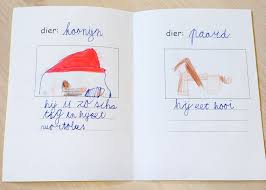 dier: konijn
hij is zo scha
tig en hij eet
wortels
dier: paard
hij eet hooi